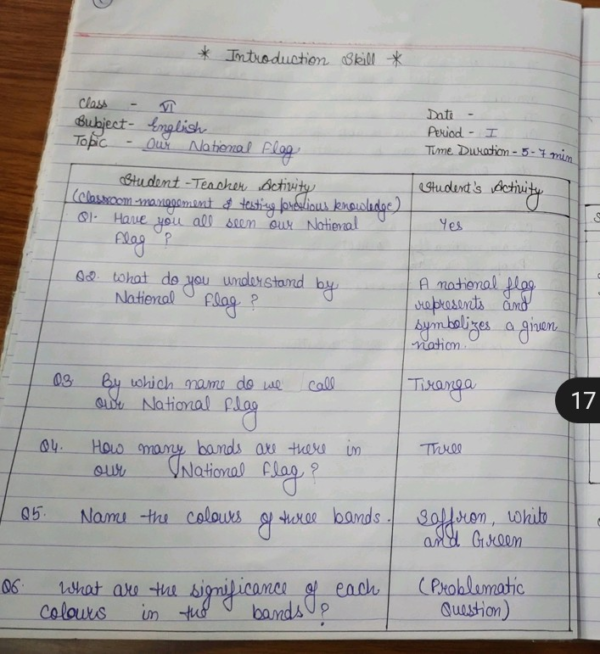 * Introduction Skill *
Class - VI
Subject - English
Topic - Our National Flag
Date -
Period - I
Time Duration - 5-7 min
Student-Teacher Activity
Student's Activity
(Classroom-mangement & testing previous knowledge)
Q1. Have you all seen our National
Flag ?
Yes
Q2. What do you understand by
National Flag ?
A national flag
represents and
symbolizes a given
nation.
Q3 By which name do we call
our National Flag
Tiranga
Q4. How many bands are there in
our National Flag ?
Three
Q5. Name the colours of three bands.
Saffron, White
and Green
Q6. What are the significance of each
colours in the bands ?
(Problematic
Question)
17